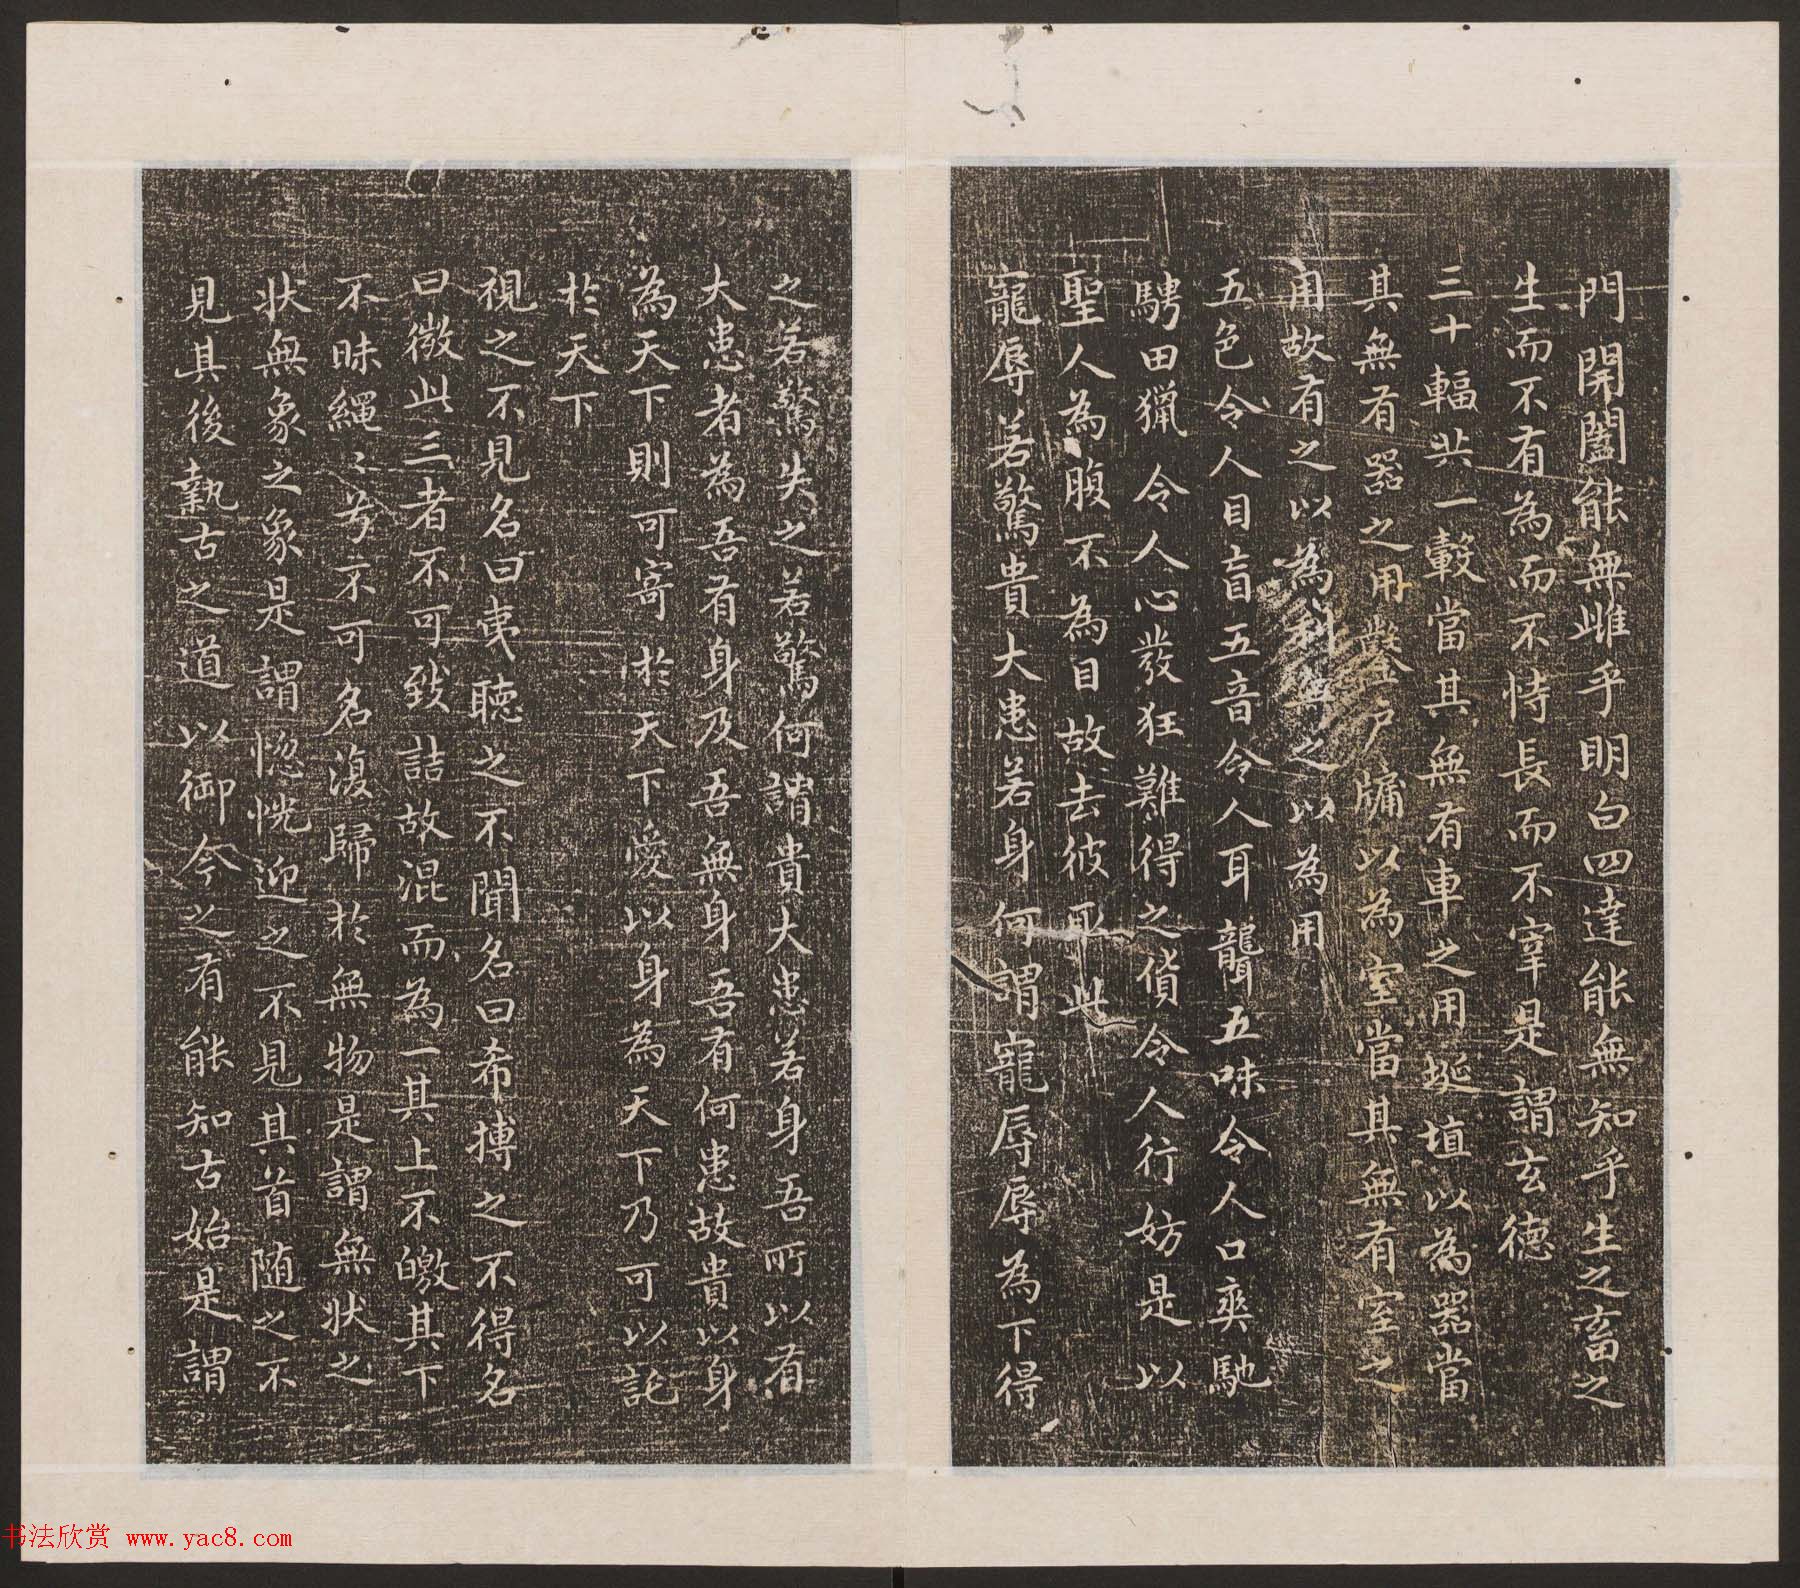 門開闔能無雌乎明白四達能無知乎生之畜之
生而不有為而不恃長而不宰是謂玄德
三十輻共一轂當其無有車之用埏埴以為器當
其無有器之用鑿戶牖以為室當其無有室之
用故有之以為利無之以為用
五色令人目盲五音令人耳聾五味令人口爽馳
騁田獵令人心發狂難得之貨令人行妨是以
聖人為腹不為目故去彼取此
寵辱若驚貴大患若身何謂寵辱辱為下得
之若驚失之若驚何謂貴大患若身吾所以有
大患者為吾有身及吾無身吾有何患故貴以身
為天下則可寄於天下愛以身為天下乃可以託
於天下
視之不見名曰夷聽之不聞名曰希搏之不得名
曰微此三者不可致詰故混而為一其上不皦其下
不昧繩〻兮不可名復歸於無物是謂無狀之
狀無象之象是謂惚恍迎之不見其首随之不
見其後執古之道以御今之有能知古始是謂
书法欣赏 www.yac8.com